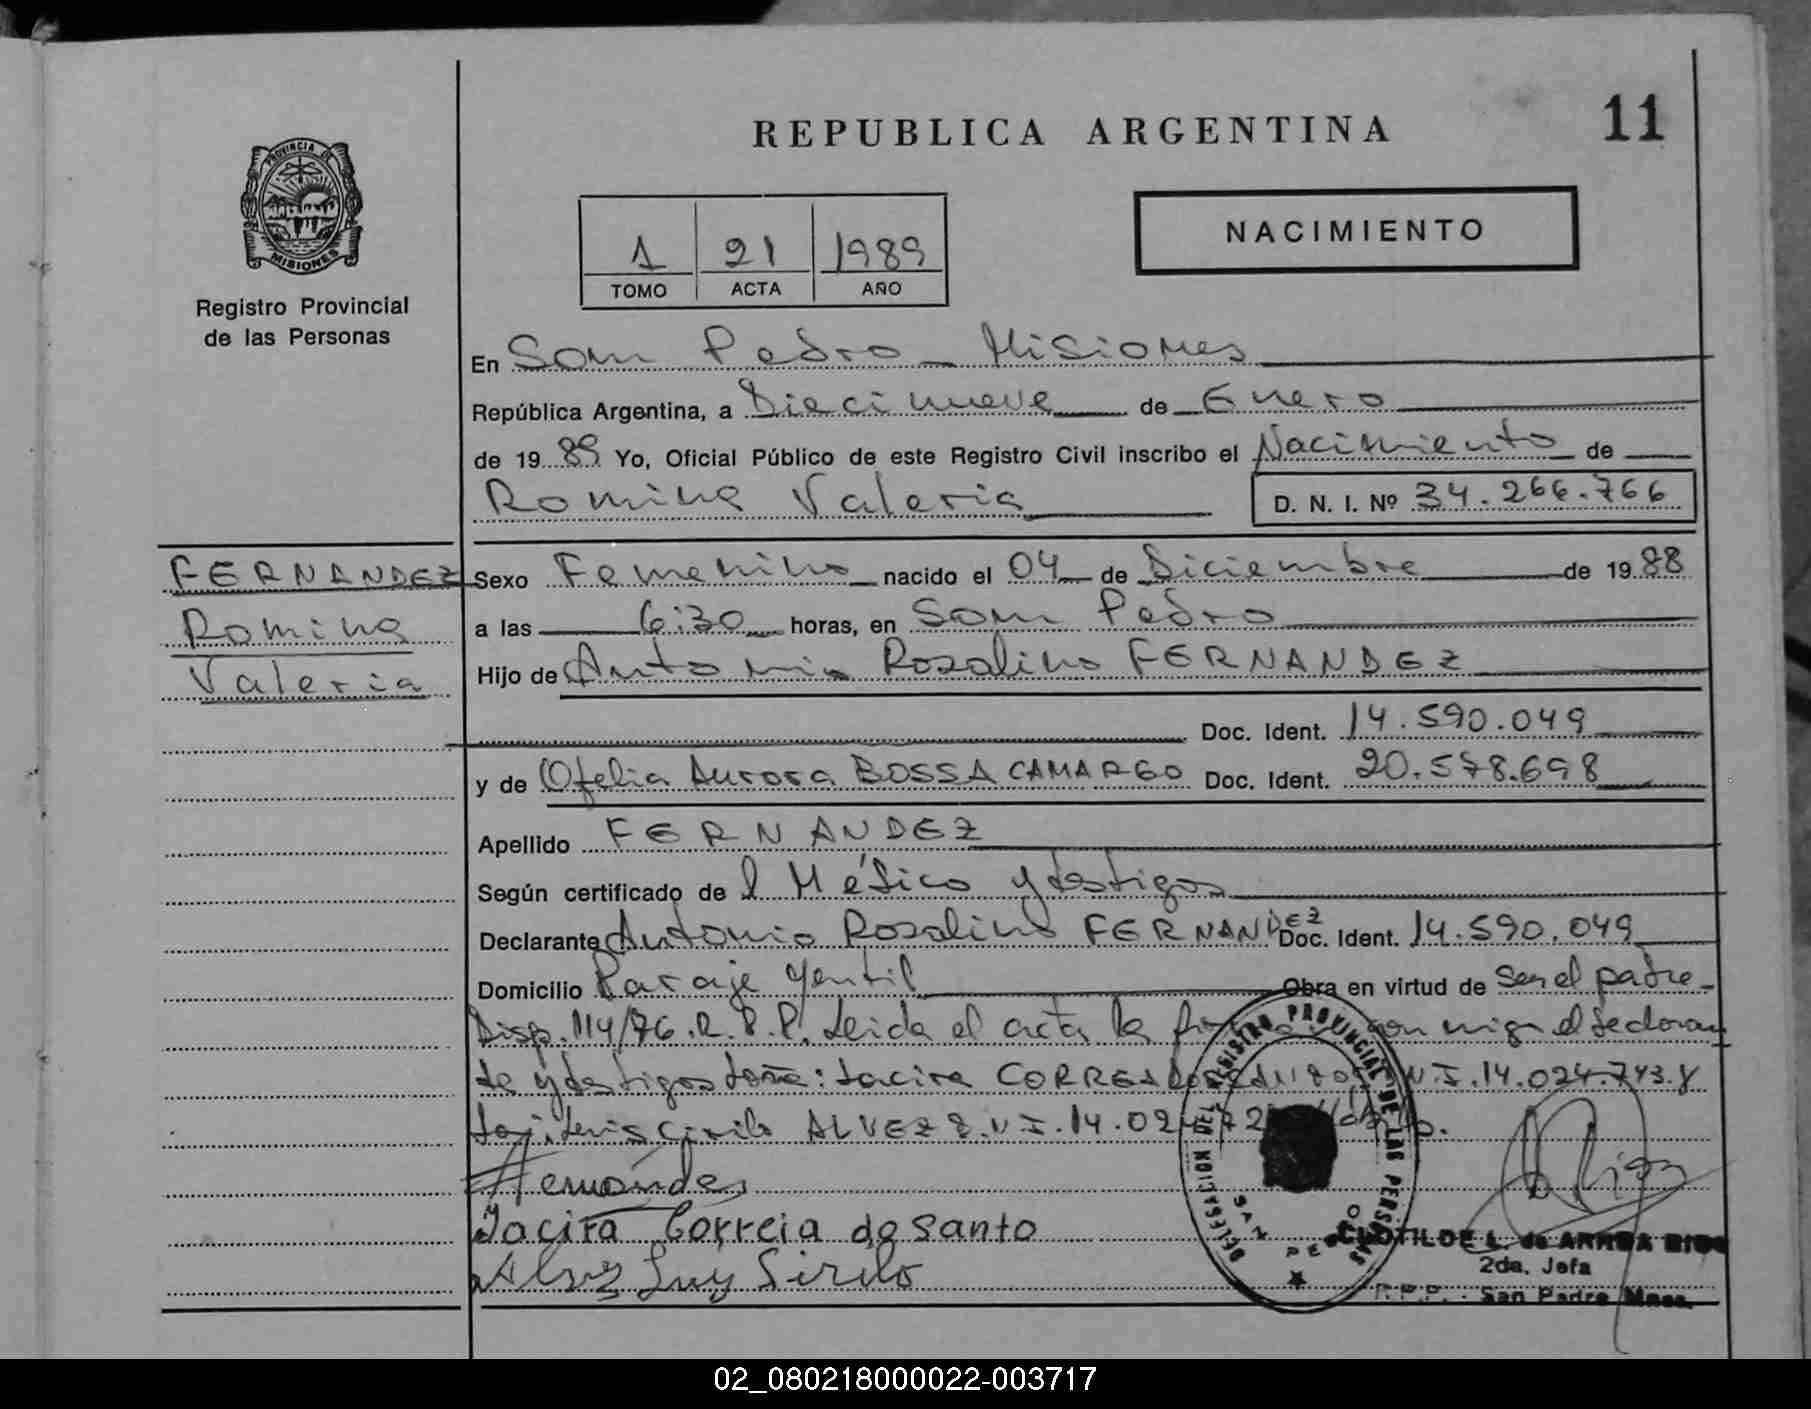 REPUBLICA ARGENTINA
11
PROVINCIA DE
MISIONES
Registro Provincial
de las Personas
NACIMIENTO
1 21 1989
TOMO ACTA AÑO
En San Pedro Misiones
República Argentina, a Diecinueve de Enero
de 1989 Yo, Oficial Público de este Registro Civil inscribo el Nacimiento de
Romina Valeria D. N. I. Nº 34.266.766
FERNANDEZ
Romina
Valeria
Sexo Femenino nacido el 04 de Diciembre de 1988
a las 6:30 horas, en San Pedro
Hijo de Antonio Rosalino FERNANDEZ
Doc. Ident. 14.590.049
y de Ofelia Aurora BOSSA CAMARGO Doc. Ident. 20.578.698
Apellido FERNANDEZ
Según certificado de l Médico y testigos
Declarante Antonio Rosalino FERNANDEZ Doc. Ident. 14.590.049
Domicilio Paraje Gentil Obra en virtud de ser el padre
Disp. 114/76. R.P.P. Leida el acta la el declaran
te y testigos doña: Jacira 14.024.743 y
ALVEZ
Fernández
Jacira Correia do santo
Alvez Luiz Sirilo
REGISTRO PROVINCIAL DE LAS PERSONAS
DELEGACION
SAN PEDRO
CLOTILDE L. de ARRUA RIOS
2da. Jefa
R.P.P. - San Pedro Mnes.
02_080218000022-003717